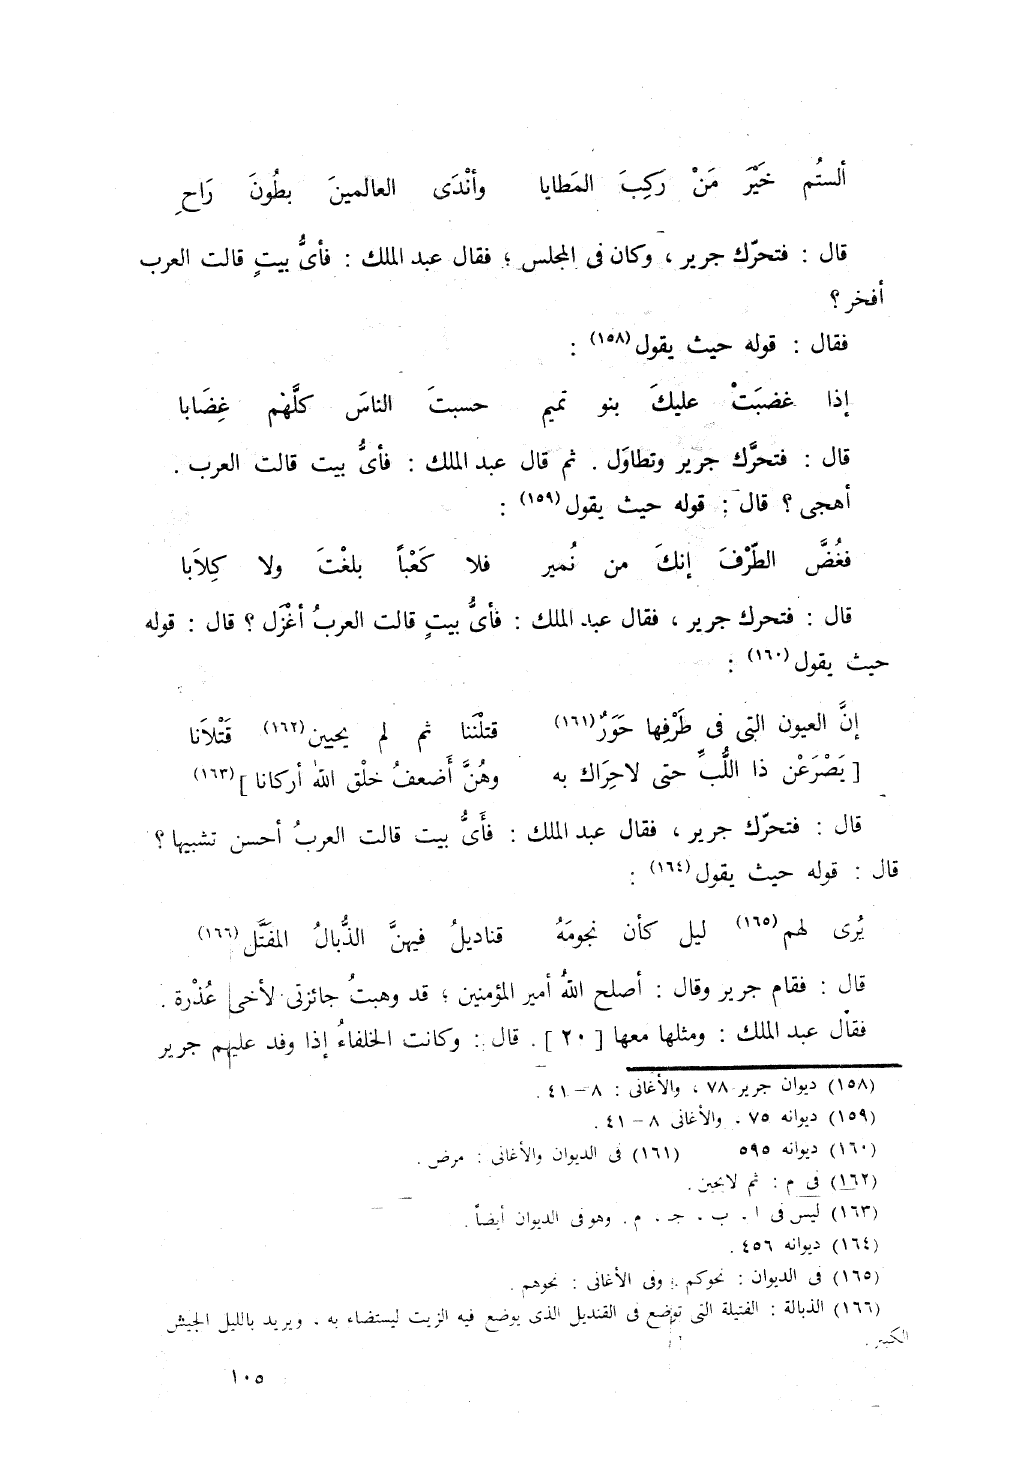 ألستُم خَيْرَ مَنْ رَكِبَ المَطايا وأنْدَى العالمينَ بطُونَ رَاحِ
قال : فتحرّك جرير ، وكان فى المجلس ؛ فقال عبد الملك : فأىُّ بيتٍ قالت العرب
أفخر ؟
فقال : قوله حيث يقول (١٥٨) :
إذا غضبَتْ عليكَ بنو تميم حسبتَ الناسَ كلَّهم غِضَابا
قال : فتحرَّك جرير وتطاوَل . ثم قال عبد الملك : فأىُّ بيت قالت العرب .
أهجى ؟ قال : قوله حيث يقول (١٥٩) :
فغُضَّ الطّرْفَ إنكَ من نُمير فلا كَعْباً بلغْتَ ولا كِلاَبا
قال : فتحرك جرير ، فقال عبد الملك : فأىُّ بيتٍ قالت العربُ أغْزَل ؟ قال : قوله
حيث يقول (١٦٠) :
إنَّ العيون التى فى طَرْفِها حَوَرٌ (١٦١) قتلْنَنا ثم لم يحيين (١٦٢) قَتْلاَنا
[ يَصْرَعْن ذا اللُّبِّ حتى لاحِرَاك به وهُنَّ أَضعفُ خلْق اللهِ أركانا ] (١٦٣)
قال : فتحرّك جرير ، فقال عبد الملك : فأَىُّ بيت قالت العربُ أحسن تشبيها ؟
قال : قوله حيث يقول (١٦٤) :
يُرى لهم (١٦٥) ليل كأن نجومَهُ قناديلُ فيهنَّ الذُّبالُ المفَتَّل (١٦٦)
قال : فقام جرير وقال : أصلح اللهُ أمير المؤمنين ؛ قد وهبتُ جائزتى لأخى عُذْرة .
فقال عبد الملك : ومثلها معها [ ٢٠ ] . قال : وكانت الخلفاءُ إذا وفد عليهم جرير
(١٥٨) ديوان جرير ٧٨ ، والأغانى : ٨ – ٤١ .
(١٥٩) ديوانه ٧٥ . والأغانى ٨ – ٤١ .
(١٦٠) ديوانه ٥٩٥ (١٦١) فى الديوان والأغانى : مرض .
(١٦٢) فى م : ثم لايحين .
(١٦٣) ليس فى ا . ب . جـ . م . وهو فى الديوان أيضاً .
(١٦٤) ديوانه ٤٥٦ .
(١٦٥) فى الديوان : نحوكم . وفى الأغانى : نحوهم .
(١٦٦) الذبالة : الفتيلة التى توضع فى القنديل الذى يوضع فيه الزيت ليستضاء به . ويريد بالليل الجيش
الكبير .
١٠٥